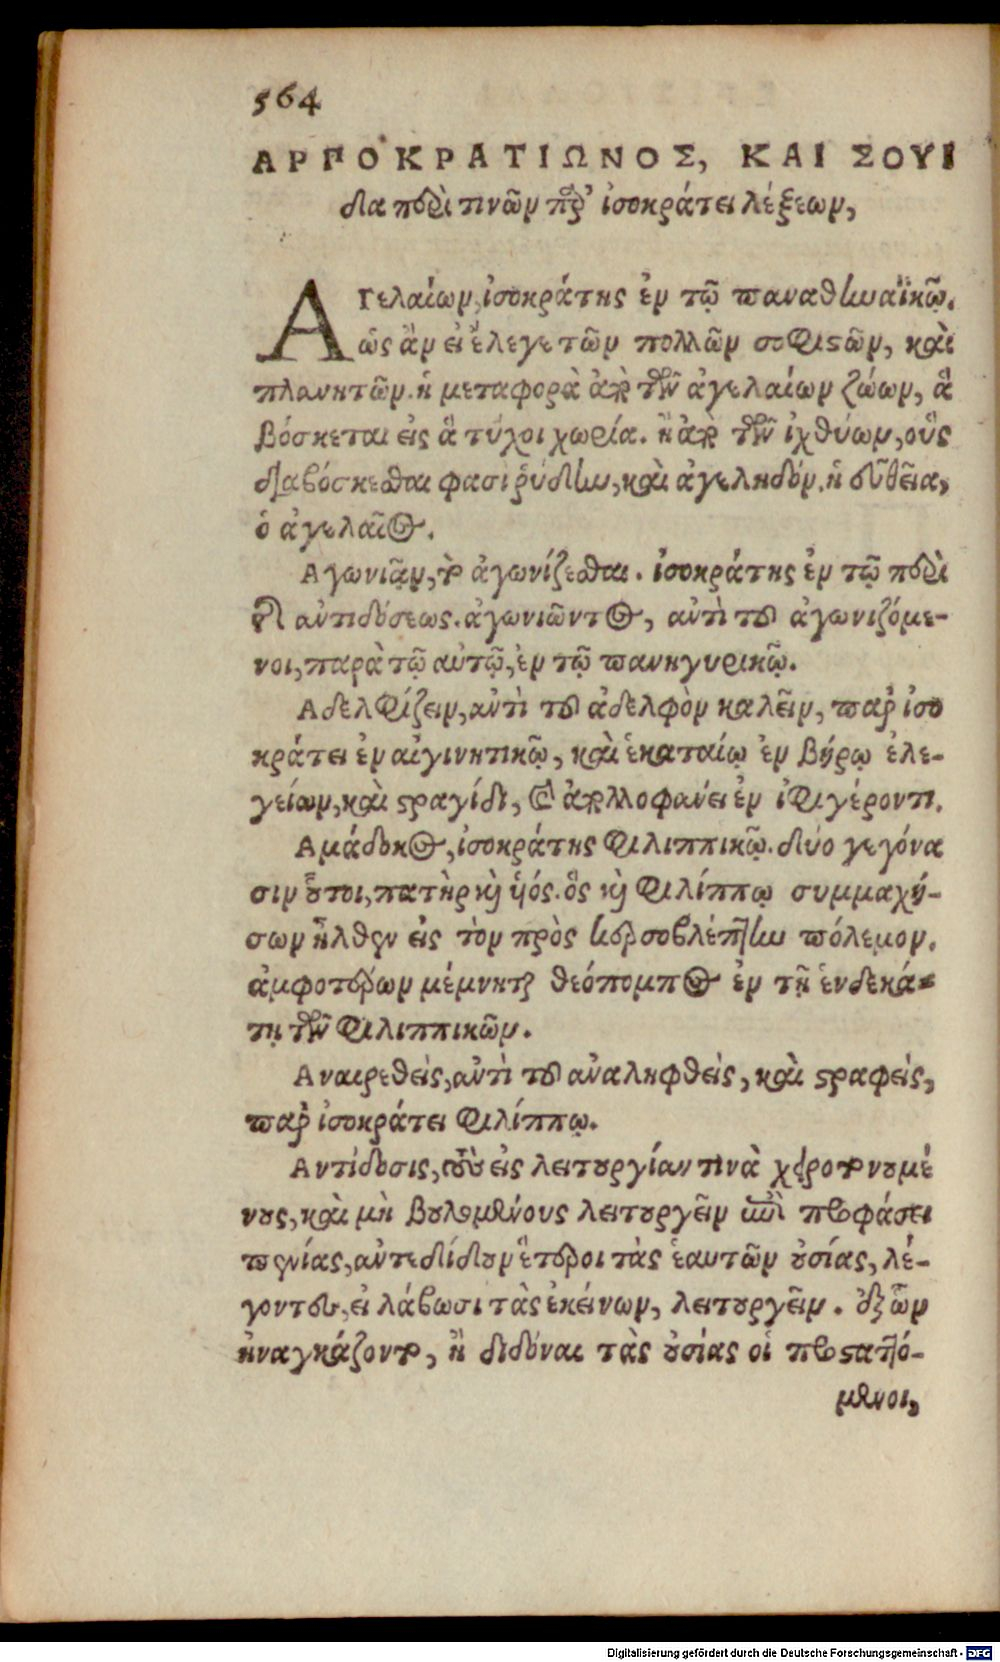 564
ΑΡΠΟΚΡΑΤΙΩΝΟΣ, ΚΑΙ ΣΟΥΙ
δα περὶ τινῶν παρ' ἰσοκράτει λέξεων,
Αγελαίων, ἰσοκράτης ἐν τῷ παναθηναϊκῷ.
ὡς ἂν εἰ ἔλεγε τῶν πολλῶν σοφιστῶν, καὶ
πλανητῶν. ἡ μεταφορὰ ἀπὸ τῶν ἀγελαίων ζώων, ἃ
βόσκεται εἰς ἃ τύχοι χωρία. ἢ ἀπὸ τῶν ἰχθύων, οὓς
διαβόσκεσθαι φασὶ ῥύδην, καὶ ἀγεληδόν. ἡ εὐθεῖα,
ὁ ἀγελαῖος.
Αγωνιᾷν, τὸ ἀγωνίζεσθαι. ἰσοκράτης ἐν τῷ περὶ
τῆς ἀντιδόσεως. ἀγωνιῶντος, αὐτὶ τοῦ ἀγωνιζόμε-
νοι, παρὰ τῷ αὐτῷ, ἐν τῷ πανηγυρικῷ.
Αδελφίζειν, αὐτὶ τοῦ ἀδελφὸν καλεῖν, παρ' ἰσο
κράτει ἐν αἰγινητικῷ, καὶ ἑκαταίῳ ἐν βήρῳ ἐλε-
γείων, καὶ στραγίδι, καὶ ἀπολλοφανει ἐν ἰφιγέροντι.
Αμάδοκος, ἰσοκράτης φιλιππικῷ. δύο γεγόνα
σιν οὗτοι, πατὴρ καὶ ὑός. ὃς καὶ φιλίππῳ συμμαχή-
σων ἦλθεν εἰς τὸν πρὸς κερσοβλέπτην πόλεμον.
ἀμφοτέρων μέμνηται θεόπομπος ἐν τῇ ἑνδεκά-
τῃ τῶν φιλιππικῶν.
Αναιρεθεὶς, αὐτὶ τοῦ ἀναληφθεὶς, καὶ στραφεὶς,
παρ' ἰσοκράτει φιλίππῳ.
Αντίδοσις, τοὺς εἰς λειτουργίαν τινὰ χειροτονουμέ
νους, καὶ μὴ βουλομένους λειτουργεῖν ἐπὶ προφάσει
πενίας, ἀντεδίδουν ἕτεροι τὰς ἑαυτῶν οὐσίας, λέ-
γοντες, εἰ λάβωσι τὰς ἐκείνων, λειτουργεῖν. ἐξ ὧν
ἠναγκάζοντο, ἢ διδόναι τὰς οὐσίας οἱ προσταττό-
μενοι,
Digitalisierung gefördert durch die Deutsche Forschungsgemeinschaft - DFG